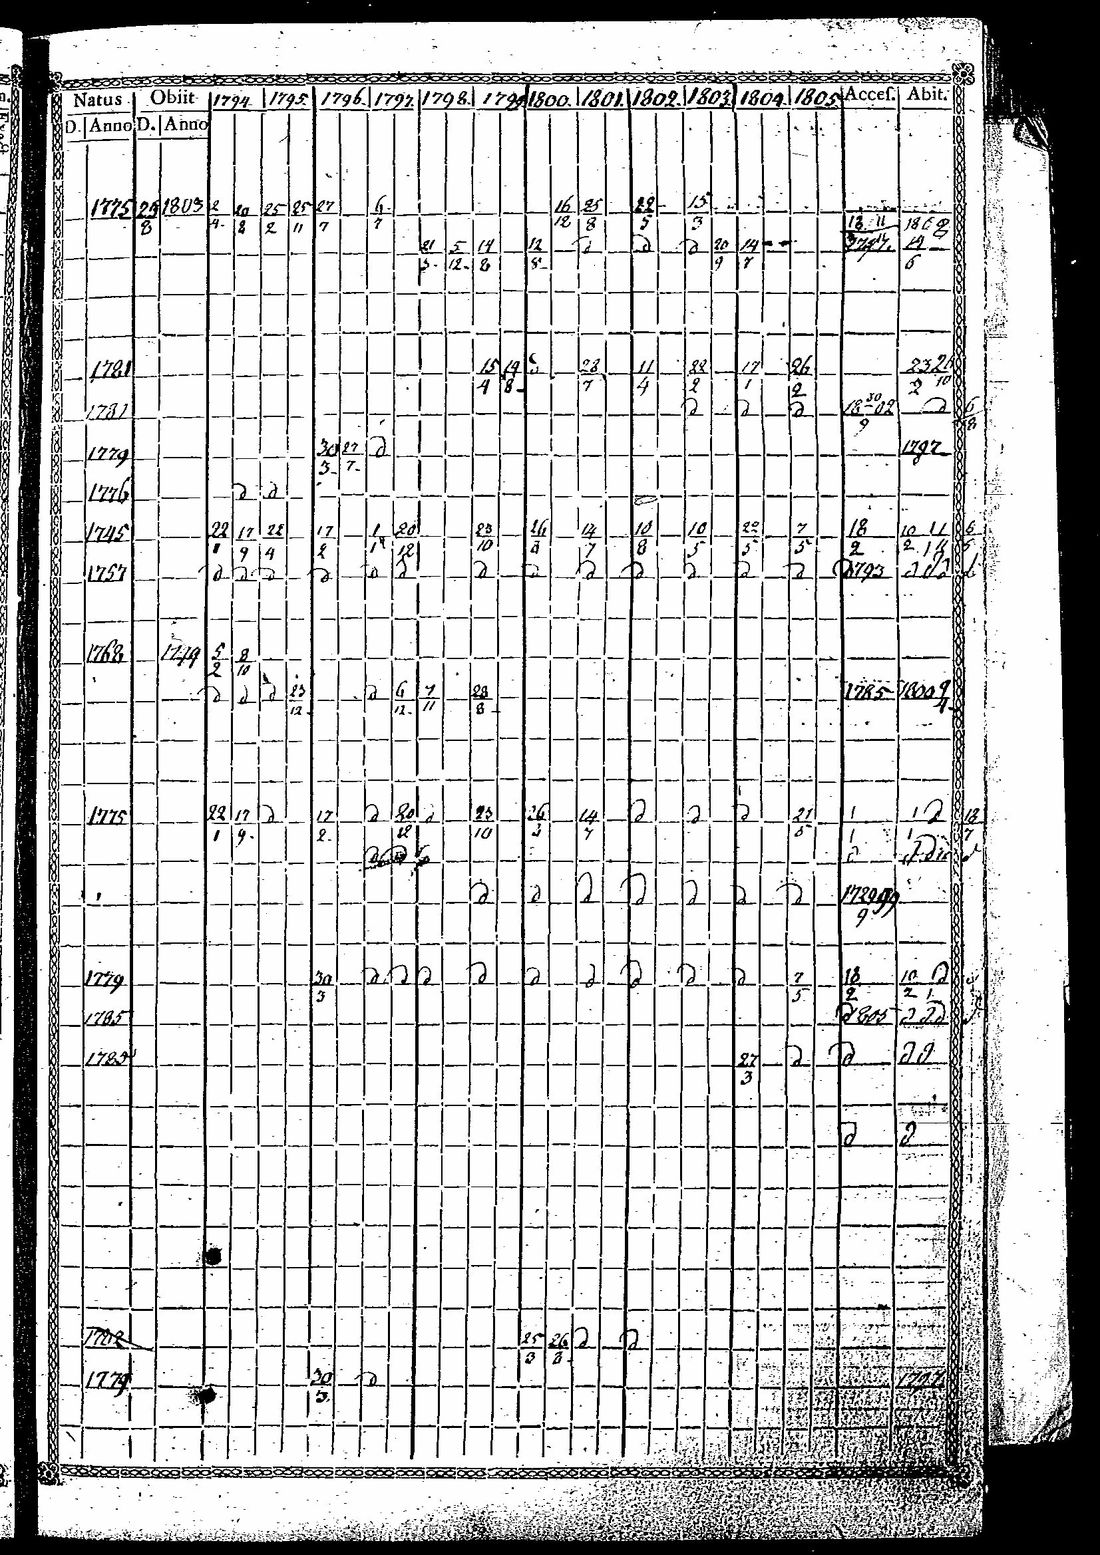 Natus Obiit 1794. 1795. 1796. 1797. 1798. 1799 1800. 1801. 1802. 1803. 1804. 1805. Acces. Abit.
D. Anno D. Anno
1775 25/8 1803 2/4 20/2 25/2 25/11 27/7 6/7 16/12 25/8 22/5 13/3
21/3 5/12 14/8 12/5 d d d 20/9 14/7 14/6
1781 15/4 19/8 28/7 11/4 22/2 17/1 26/2 23/2
1781 d d d 18 30/9 02 d 6/8
1779 30/3 27/7 d 1797
1776 d d
1745 22/1 17/9 22/4 17/2 20/12 23/10 26/3 14/7 10/8 10/5 22/5 7/5 18/2 10/2
1757 d d d d d d d d d d d d d 1793 d d d
1768 5/2 8/10
d d d 23/12 d 6/12 7/11 28/8 1785 1800
1775 22/1 17/9 d 17/2 d 20/12 d 23/10 26/3 14/7 d d d 21/5 1/1 1/1 d 18/7
d d
d d d d d d d
1779 30/3 d d d d d d d d d 7/5 18/2 10/2 d
1785 d 1805 d d d
1789 27/3 d d d d
d d
1782 25/3 26/8 d d
1779 30/3 d 1797